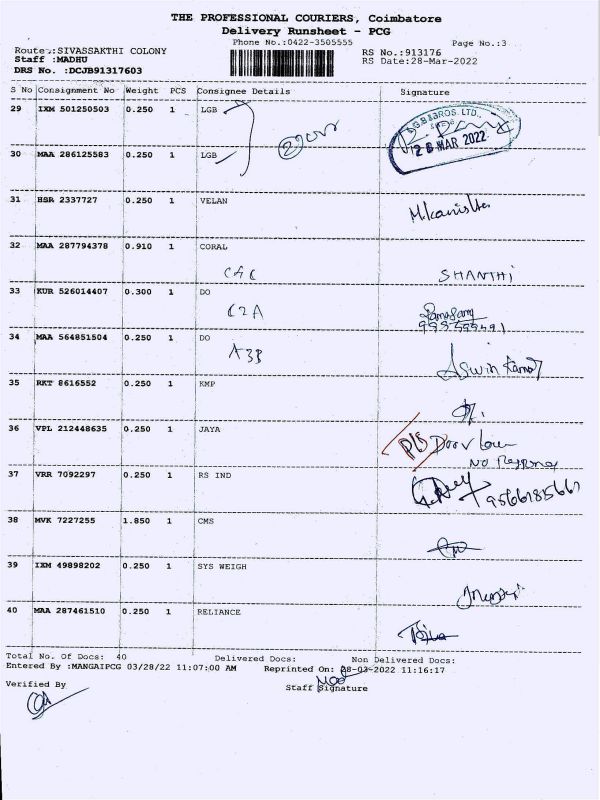 THE PROFESSIONAL COURIERS, Coimbatore
Delivery Runsheet - PCG
Phone No.:0422-3505555 Page No.:3
Route.:SIVASSAKTHI COLONY RS No.:913176
Staff :MADHU RS Date:28-Mar-2022
DRS No. :DCJB91317603
S No Consignment No Weight PCS Consignee Details Signature
29 IXM 501250503 0.250 1 LGB
28 MAR 2022
30 MAA 286125583 0.250 1 LGB
31 HSR 2337727 0.250 1 VELAN
32 MAA 287794378 0.910 1 CORAL
C4C SHANTHI
33 KUR 526014407 0.300 1 DO
C2A
34 MAA 564851504 0.250 1 DO
A3B
Aswin Kumar
35 RKT 8616552 0.250 1 KMP
36 VPL 212448635 0.250 1 JAYA
Door Lock
NO Response
37 VRR 7092297 0.250 1 RS IND
9566785667
38 MVK 7227255 1.850 1 CMS
39 IXM 49898202 0.250 1 SYS WEIGH
40 MAA 287461510 0.250 1 RELIANCE
Total No. Of Docs: 40 Delivered Docs: Non Delivered Docs:
Entered By :MANGAIPCG 03/28/22 11:07:00 AM Reprinted On: 28-03-2022 11:16:17
Verified By Staff Signature